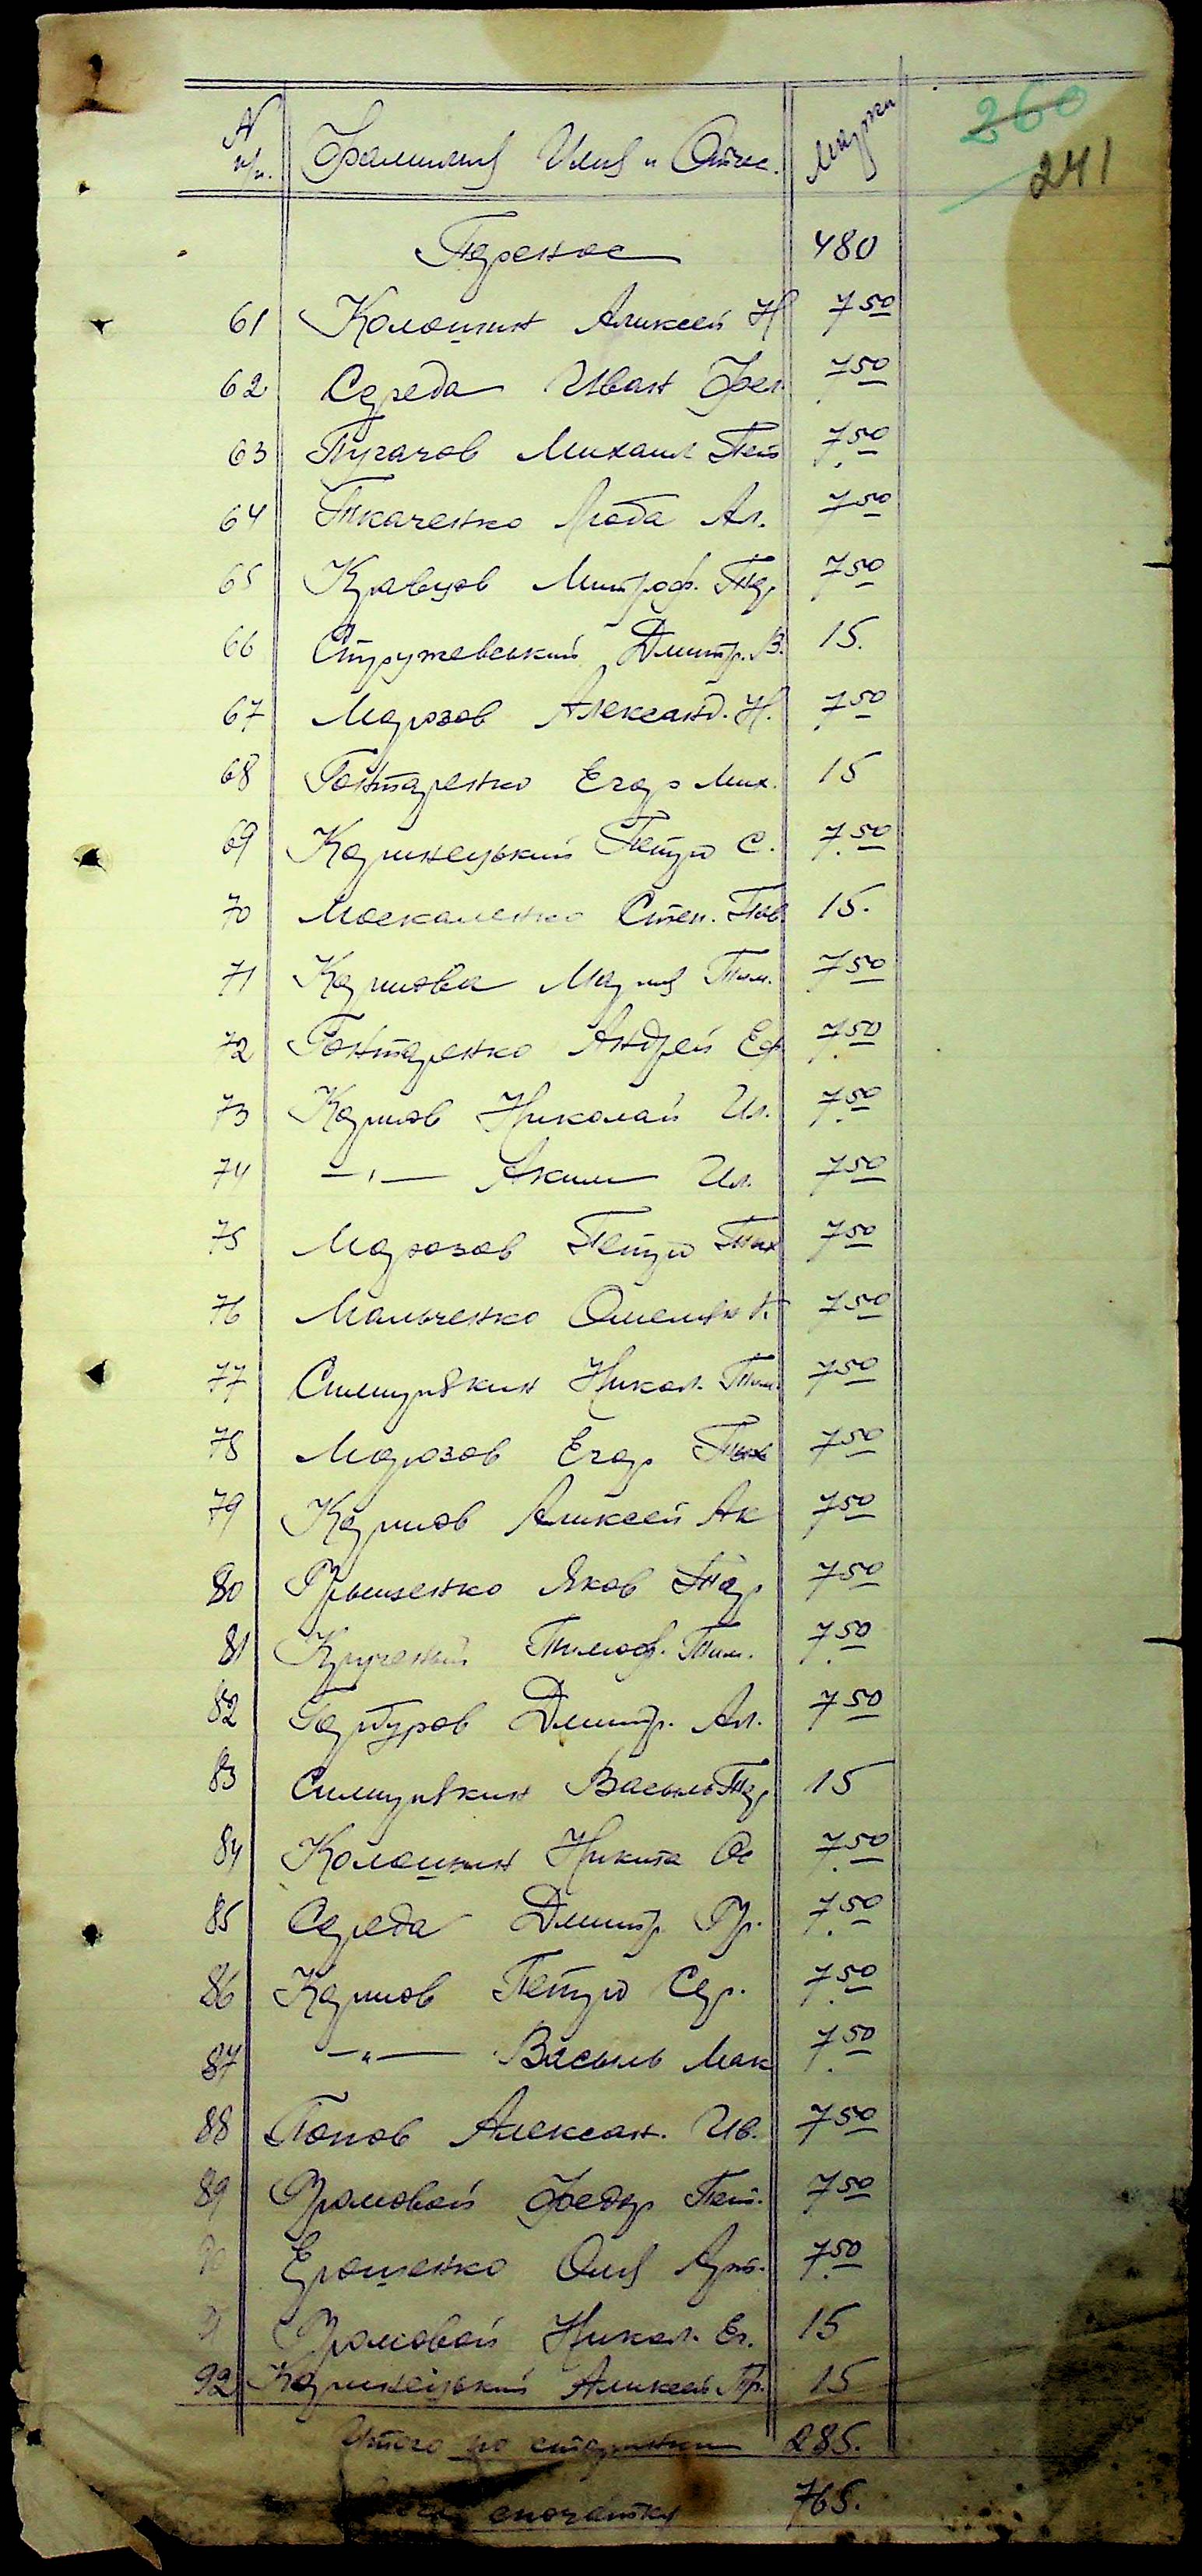 260
241
N п/п. Фамилия Имя и Отчес. Марки
Перенос 480
61 Колошин Аликсей Н 7 50
62 Середа Иван Фел 7 50
63 Пугачов Михаил Пет 7 50
64 Ткаченко Люба Ал. 7 50
65 Кравцов Митроф. 7 50
66 Стружевський Дмитр. В. 15.
67 Морозов Александ. Н. 7 50
68 Гонтаренко Егор Мих. 15
69 Коринецький Петро С. 7 50
70 Москаленко Степ. Пав. 15.
71 Мария Тим. 7 50
72 Гонтаренко Андрей Еф 7 50
73 Николай Ил. 7 50
74 —"— Аким Ил. 7 50
75 Морозов Петро Тих 7 50
76 Мальченко Омельян К 7 50
77 Никол. Тим. 7 50
78 Морозов Егор Тих 7 50
79 Аликсей Ак 7 50
80 Грыщенко Яков 7 50
81 Крученый Тимоф. Тим. 7 50
82 Дмитр. Ал. 7 50
83 Василь 15
84 Колошин Никита Ос 7 50
85 Середа Дмитр Гр. 7 50
86 Петро Сер. 7 50
87 —"— Василь Мак 7 50
88 Попов Алексан. Ив. 7 50
89 Громовой Федор Пет. 7 50
90 Ерошенко Олия Арт. 7 50
91 Громовой Никол. Ег. 15
92 Коринецький Аликсей Гр. 15
Итого по старинки 285.
спочатку 765.